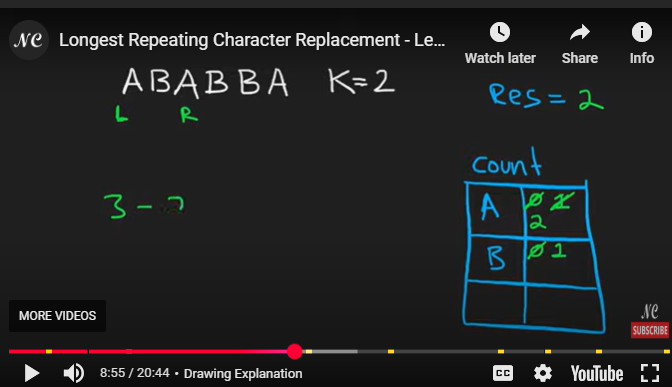 NC Longest Repeating Character Replacement - Le...
Watch later Share Info
ABABBA K=2
L R
Res = 2
Count
A 0 1
2
B 0 1
3 - 2
MORE VIDEOS
NC
SUBSCRIBE
8:55 / 20:44 • Drawing Explanation
CC YouTube